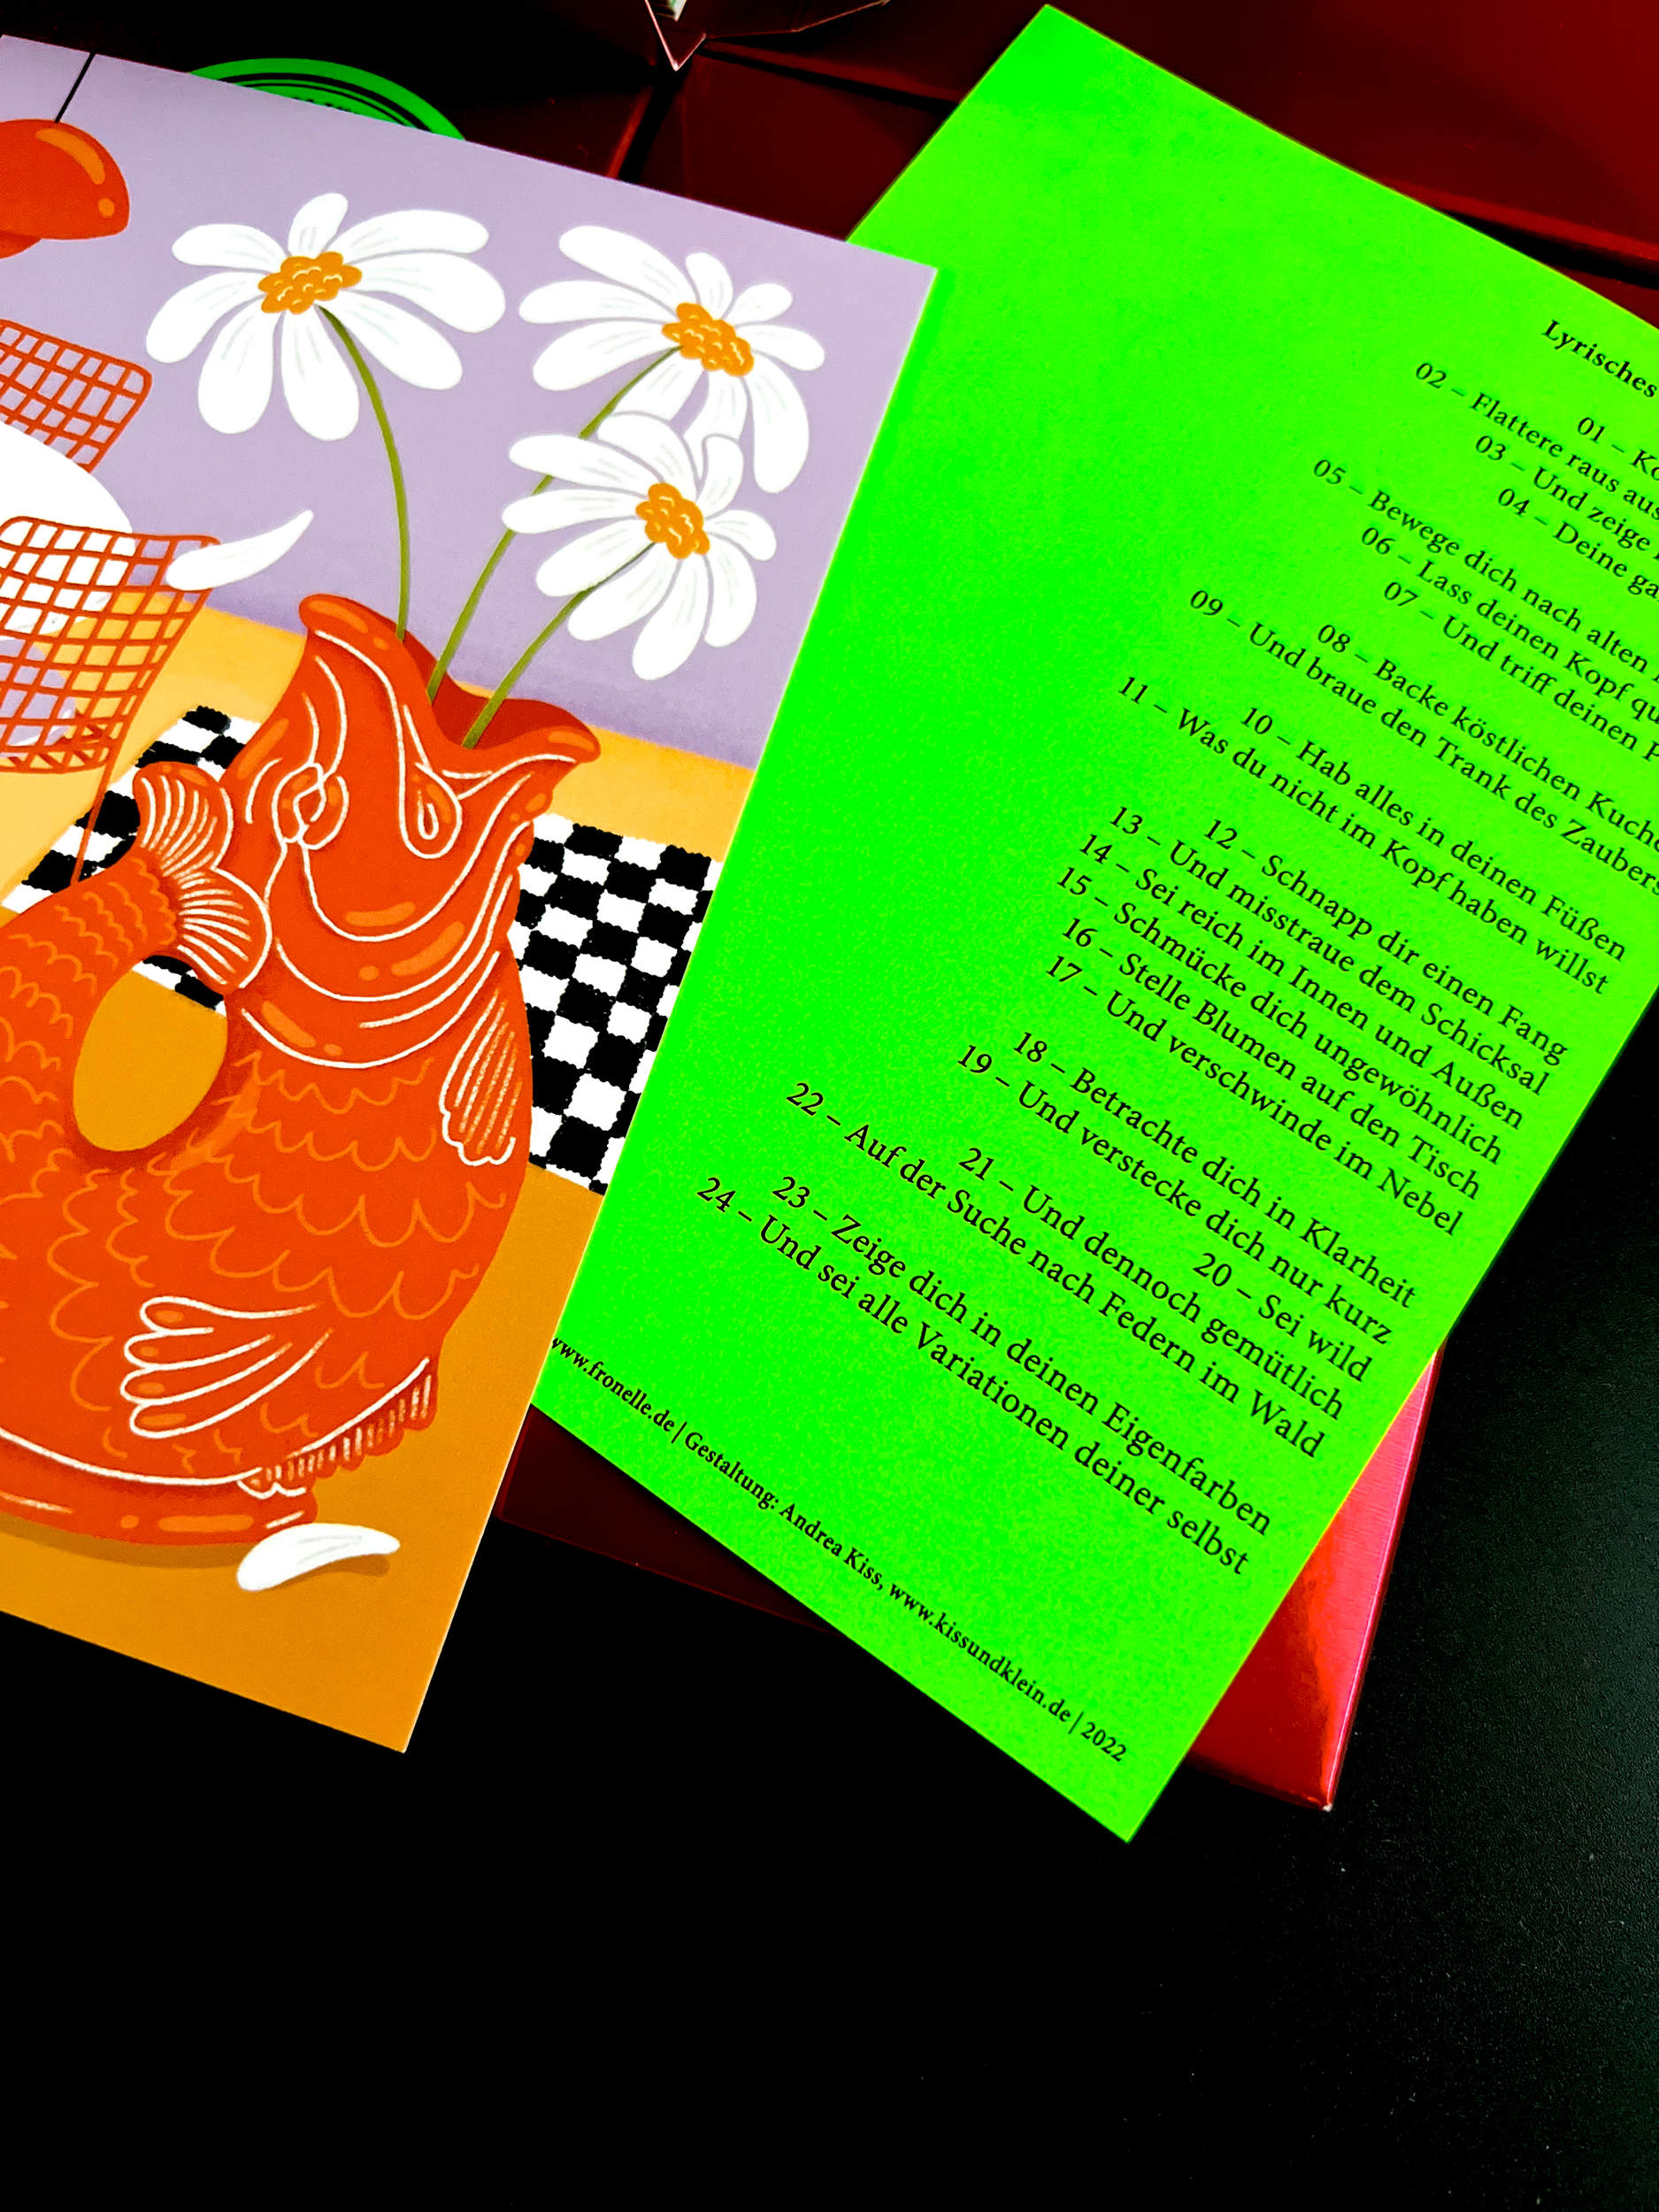 Lyrisches
01 –
02 – Flattere raus aus
03 – Und zeige
04 – Deine
05 – Bewege dich nach alten
06 – Lass deinen Kopf
07 – Und triff deinen
08 – Backe köstlichen
09 – Und braue den Trank des
10 – Hab alles in deinen Füßen
11 – Was du nicht im Kopf haben willst
12 – Schnapp dir einen Fang
13 – Und misstraue dem Schicksal
14 – Sei reich im Innen und Außen
15 – Schmücke dich ungewöhnlich
16 – Stelle Blumen auf den Tisch
17 – Und verschwinde im Nebel
18 – Betrachte dich in Klarheit
19 – Und verstecke dich nur kurz
20 – Sei wild
21 – Und dennoch gemütlich
22 – Auf der Suche nach Federn im Wald
23 – Zeige dich in deinen Eigenfarben
24 – Und sei alle Variationen deiner selbst
www.fronelle.de | Gestaltung: Andrea Kiss, www.kissundklein.de | 2022